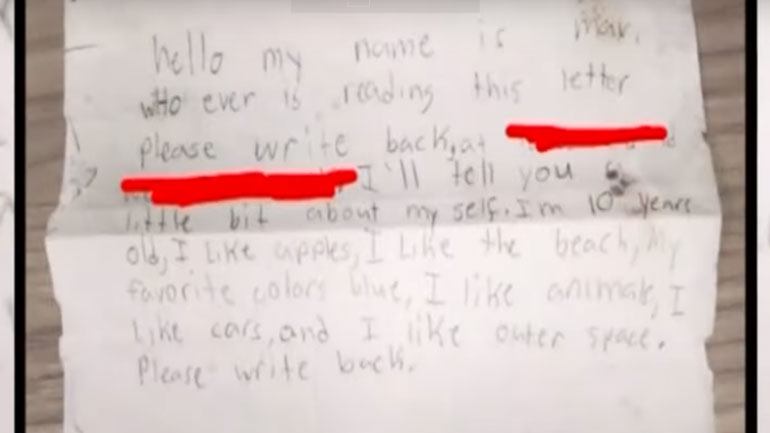 hello my name is Max.
who ever is reading this letter
please write back, at
I'll tell you a
little bit about my self. Im 10 years
old, I Like apples, I Like the beach, My
favorite colors blue, I like animals, I
Like cars, and I like outer space.
Please write back.